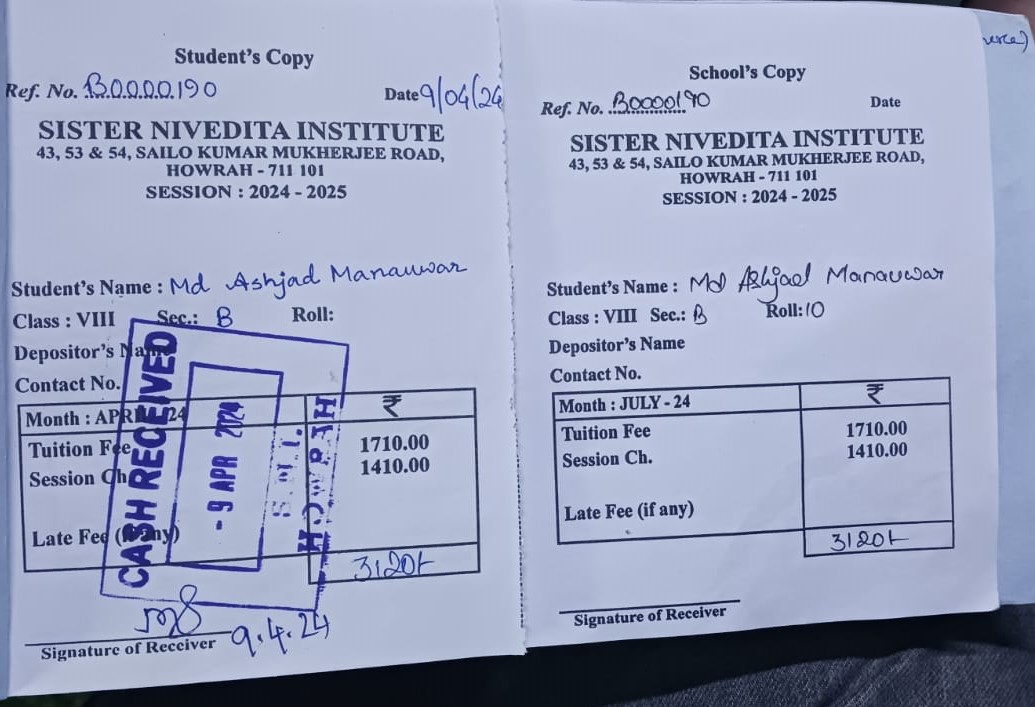 Student's Copy
Ref. No. B0000190
Date 9/04/24
SISTER NIVEDITA INSTITUTE
43, 53 & 54, SAILO KUMAR MUKHERJEE ROAD,
HOWRAH - 711 101
SESSION : 2024 - 2025
Student's Name : Md Ashjad Manauwar
Class : VIII Sec.: B Roll:
Depositor's Name
Contact No.
Month : APRIL - 24 ₹
Tuition Fee 1710.00
Session Ch. 1410.00
Late Fee (if any)
3120/-
CASH RECEIVED
- 9 APR 2024
S.N.I.
HOWRAH
9.4.24
Signature of Receiver
School's Copy
Ref. No. B0000190
Date
SISTER NIVEDITA INSTITUTE
43, 53 & 54, SAILO KUMAR MUKHERJEE ROAD,
HOWRAH - 711 101
SESSION : 2024 - 2025
Student's Name : Md Ashjad Manauwar
Class : VIII Sec.: B Roll: 10
Depositor's Name
Contact No.
Month : JULY - 24 ₹
Tuition Fee 1710.00
Session Ch. 1410.00
Late Fee (if any)
3120/-
Signature of Receiver